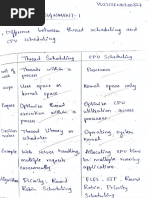 ASSIGNMENT-1
1. Difference between thread scheduling and
CPU scheduling
Thread Scheduling
CPU Scheduling
Unit of
work
Threads within a
process
Processes
scope
User space or
kernel space
Kernel space
only
Optimize thread
execution within
a process
Optimize CPU
utilization
across
processes
Thread library
or scheduler
Operating system
kernel
Example
Web server handling
multiple requests
concurrently
Allocating CPU time
to multiple running
applications
Algorithm
Priority, Round
Robin, Scheduling
FCFS, SJF, Round
Robin, Priority
Scheduling